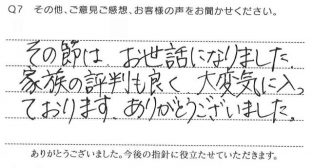 Q7 その他、ご意見ご感想、お客様の声をお聞かせください。
その節は お世話になりました。
家族の評判も良く 大変気に入っ
ております。ありがとうございました。
ありがとうございました。今後の指針に役立たせていただきます。